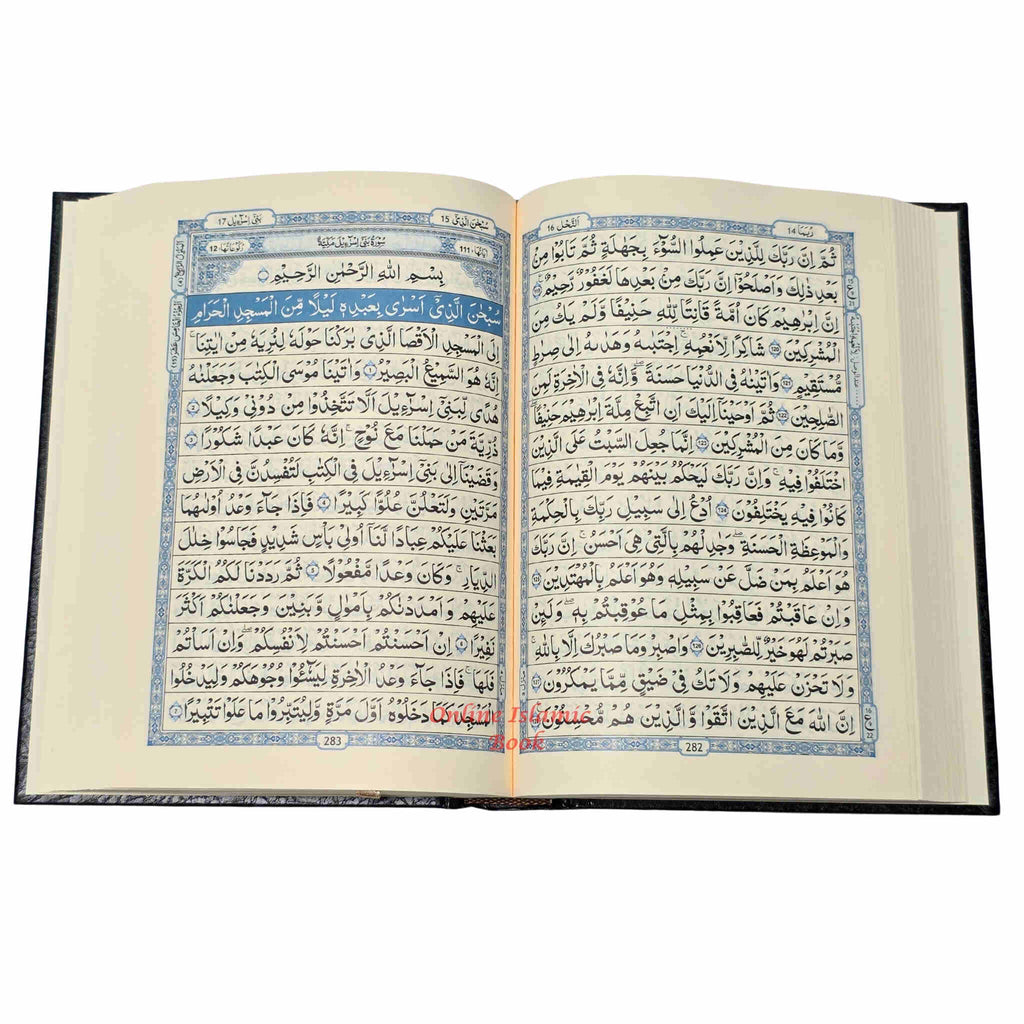 رُبَمَا 14
اَلنَّحْل 16
ثُمَّ اِنَّ رَبَّكَ لِلَّذِيْنَ عَمِلُوا السُّوْٓءَ بِجَهَالَةٍ ثُمَّ تَابُوْا مِنْۢ
بَعْدِ ذٰلِكَ وَاَصْلَحُوْۤا اِنَّ رَبَّكَ مِنْۢ بَعْدِهَا لَغَفُوْرٌ رَّحِيْمٌ
اِنَّ اِبْرٰهِيْمَ كَانَ اُمَّةً قَانِتًا لِّلّٰهِ حَنِيْفًا ؕ وَلَمْ يَكُ مِنَ
الْمُشْرِكِيْنَ 120 شَاكِرًا لِّاَنْعُمِهٖ ؕ اِجْتَبٰىهُ وَهَدٰىهُ اِلٰى صِرَاطٍ
مُّسْتَقِيْمٍ 121 وَاٰتَيْنٰهُ فِى الدُّنْيَا حَسَنَةً ؕ وَاِنَّهٗ فِى الْاٰخِرَةِ لَمِنَ
الصّٰلِحِيْنَ 122 ثُمَّ اَوْحَيْنَاۤ اِلَيْكَ اَنِ اتَّبِعْ مِلَّةَ اِبْرٰهِيْمَ حَنِيْفًا ؕ
وَمَا كَانَ مِنَ الْمُشْرِكِيْنَ 123 اِنَّمَا جُعِلَ السَّبْتُ عَلَى الَّذِيْنَ
اخْتَلَفُوْا فِيْهِ ؕ وَاِنَّ رَبَّكَ لَيَحْكُمُ بَيْنَهُمْ يَوْمَ الْقِيٰمَةِ فِيْمَا
كَانُوْا فِيْهِ يَخْتَلِفُوْنَ 124 اُدْعُ اِلٰى سَبِيْلِ رَبِّكَ بِالْحِكْمَةِ
وَالْمَوْعِظَةِ الْحَسَنَةِ وَجَادِلْهُمْ بِالَّتِىْ هِىَ اَحْسَنُ ؕ اِنَّ رَبَّكَ
هُوَ اَعْلَمُ بِمَنْ ضَلَّ عَنْ سَبِيْلِهٖ وَهُوَ اَعْلَمُ بِالْمُهْتَدِيْنَ 125
وَاِنْ عَاقَبْتُمْ فَعَاقِبُوْا بِمِثْلِ مَا عُوْقِبْتُمْ بِهٖ ؕ وَلَئِنْ
صَبَرْتُمْ لَهُوَ خَيْرٌ لِّلصّٰبِرِيْنَ 126 وَاصْبِرْ وَمَا صَبْرُكَ اِلَّا بِاللّٰهِ
وَلَا تَحْزَنْ عَلَيْهِمْ وَلَا تَكُ فِىْ ضَيْقٍ مِّمَّا يَمْكُرُوْنَ 127
اِنَّ اللّٰهَ مَعَ الَّذِيْنَ اتَّقَوْا وَّالَّذِيْنَ هُمْ مُّحْسِنُوْنَ
282
سُبْحٰنَ الَّذِىْۤ 15
بَنِىْۤ اِسْرَآءِيْل 17
اٰيَاتُهَا 111
سُوْرَةُ بَنِىْۤ اِسْرَآءِيْلَ مَكِّيَّةٌ
رُكُوْعَاتُهَا 12
بِسْمِ اللّٰهِ الرَّحْمٰنِ الرَّحِيْمِ
سُبْحٰنَ الَّذِىْۤ اَسْرٰى بِعَبْدِهٖ لَيْلًا مِّنَ الْمَسْجِدِ الْحَرَامِ
اِلَى الْمَسْجِدِ الْاَقْصَا الَّذِىْ بٰرَكْنَا حَوْلَهٗ لِنُرِيَهٗ مِنْ اٰيٰتِنَا ؕ
اِنَّهٗ هُوَ السَّمِيْعُ الْبَصِيْرُ 1 وَاٰتَيْنَا مُوْسَى الْكِتٰبَ وَجَعَلْنٰهُ
هُدًى لِّبَنِىْۤ اِسْرَآءِيْلَ اَلَّا تَتَّخِذُوْا مِنْ دُوْنِىْ وَكِيْلًا 2
ذُرِّيَّةَ مَنْ حَمَلْنَا مَعَ نُوْحٍ ؕ اِنَّهٗ كَانَ عَبْدًا شَكُوْرًا 3
وَقَضَيْنَاۤ اِلٰى بَنِىْۤ اِسْرَآءِيْلَ فِى الْكِتٰبِ لَتُفْسِدُنَّ فِى الْاَرْضِ
مَرَّتَيْنِ وَلَتَعْلُنَّ عُلُوًّا كَبِيْرًا 4 فَاِذَا جَآءَ وَعْدُ اُوْلٰىهُمَا
بَعَثْنَا عَلَيْكُمْ عِبَادًا لَّنَاۤ اُولِىْ بَاْسٍ شَدِيْدٍ فَجَاسُوْا خِلٰلَ
الدِّيَارِ ؕ وَكَانَ وَعْدًا مَّفْعُوْلًا 5 ثُمَّ رَدَدْنَا لَكُمُ الْكَرَّةَ
عَلَيْهِمْ وَاَمْدَدْنٰكُمْ بِاَمْوَالٍ وَّبَنِيْنَ وَجَعَلْنٰكُمْ اَكْثَرَ
نَفِيْرًا 6 اِنْ اَحْسَنْتُمْ اَحْسَنْتُمْ لِاَنْفُسِكُمْ وَاِنْ اَسَاْتُمْ
فَلَهَا ؕ فَاِذَا جَآءَ وَعْدُ الْاٰخِرَةِ لِيَسُوْٓءٗا وُجُوْهَكُمْ وَلِيَدْخُلُوا
الْمَسْجِدَ كَمَا دَخَلُوْهُ اَوَّلَ مَرَّةٍ وَّلِيُتَبِّرُوْا مَا عَلَوْا تَتْبِيْرًا 7
283
Online Islamic
Book